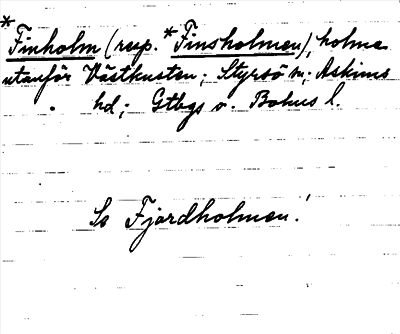 *Finholm (resp. *Finsholmen), holme
utanför Västkusten; Styrsö sn; Askims
hd; Gtbgs o. Bohus l.
Se Fjordholmen!